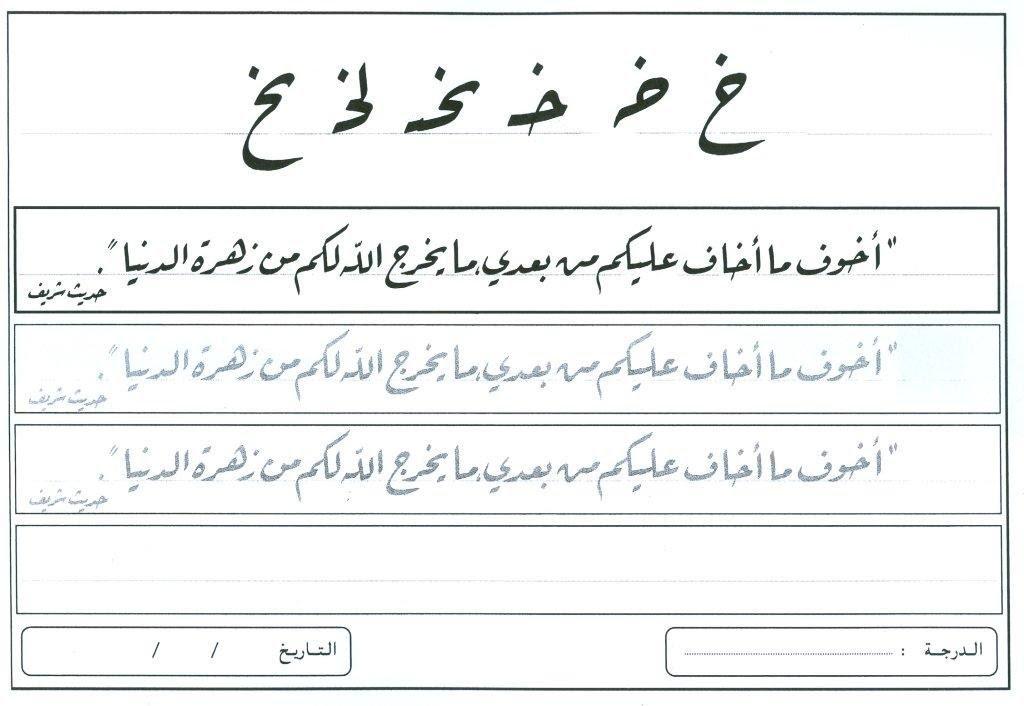 خ خـ خـ نخـ لخـ نخ
"أخوف ما أخاف عليكم من بعدي، ما يخرج اللّه لكم من زهرة الدنيا".
حديث شريف
"أخوف ما أخاف عليكم من بعدي، ما يخرج اللّه لكم من زهرة الدنيا".
حديث شريف
"أخوف ما أخاف عليكم من بعدي، ما يخرج اللّه لكم من زهرة الدنيا".
حديث شريف
الدرجة : ........................ التاريخ / /